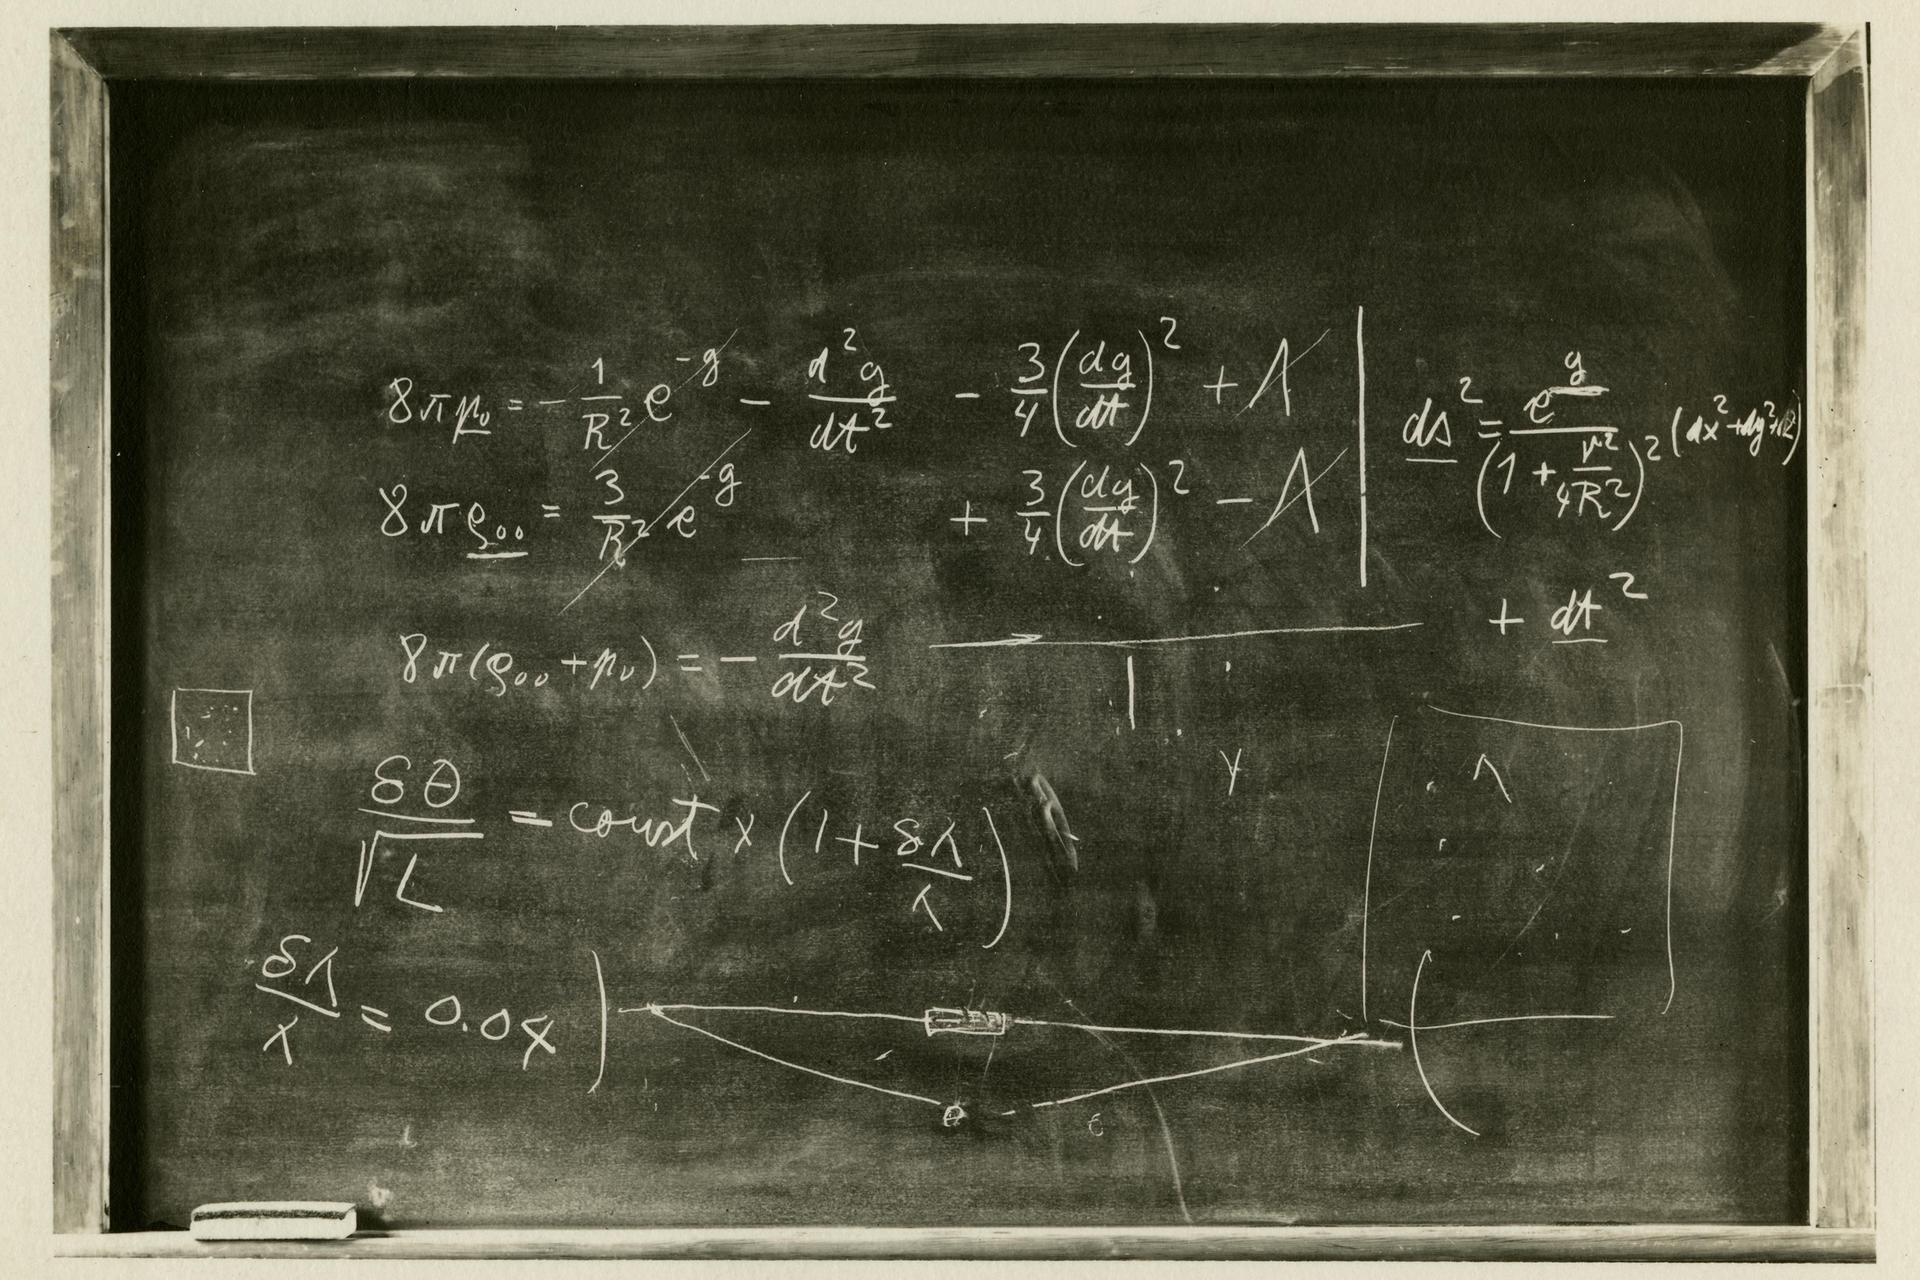 8πp₀ = − 1/R² e^−g − d²g/dt² − 3/4 (dg/dt)² + Λ
8πρ₀₀ = 3/R² e^−g + 3/4 (dg/dt)² − Λ
ds² = e^g/(1 + r²/4R²)² (dx²+dy²+dz²)
+ dt²
8π(ρ₀₀ + p₀) = − d²g/dt²
δθ/√L = const × (1 + δλ/λ)
δλ/λ = 0.0